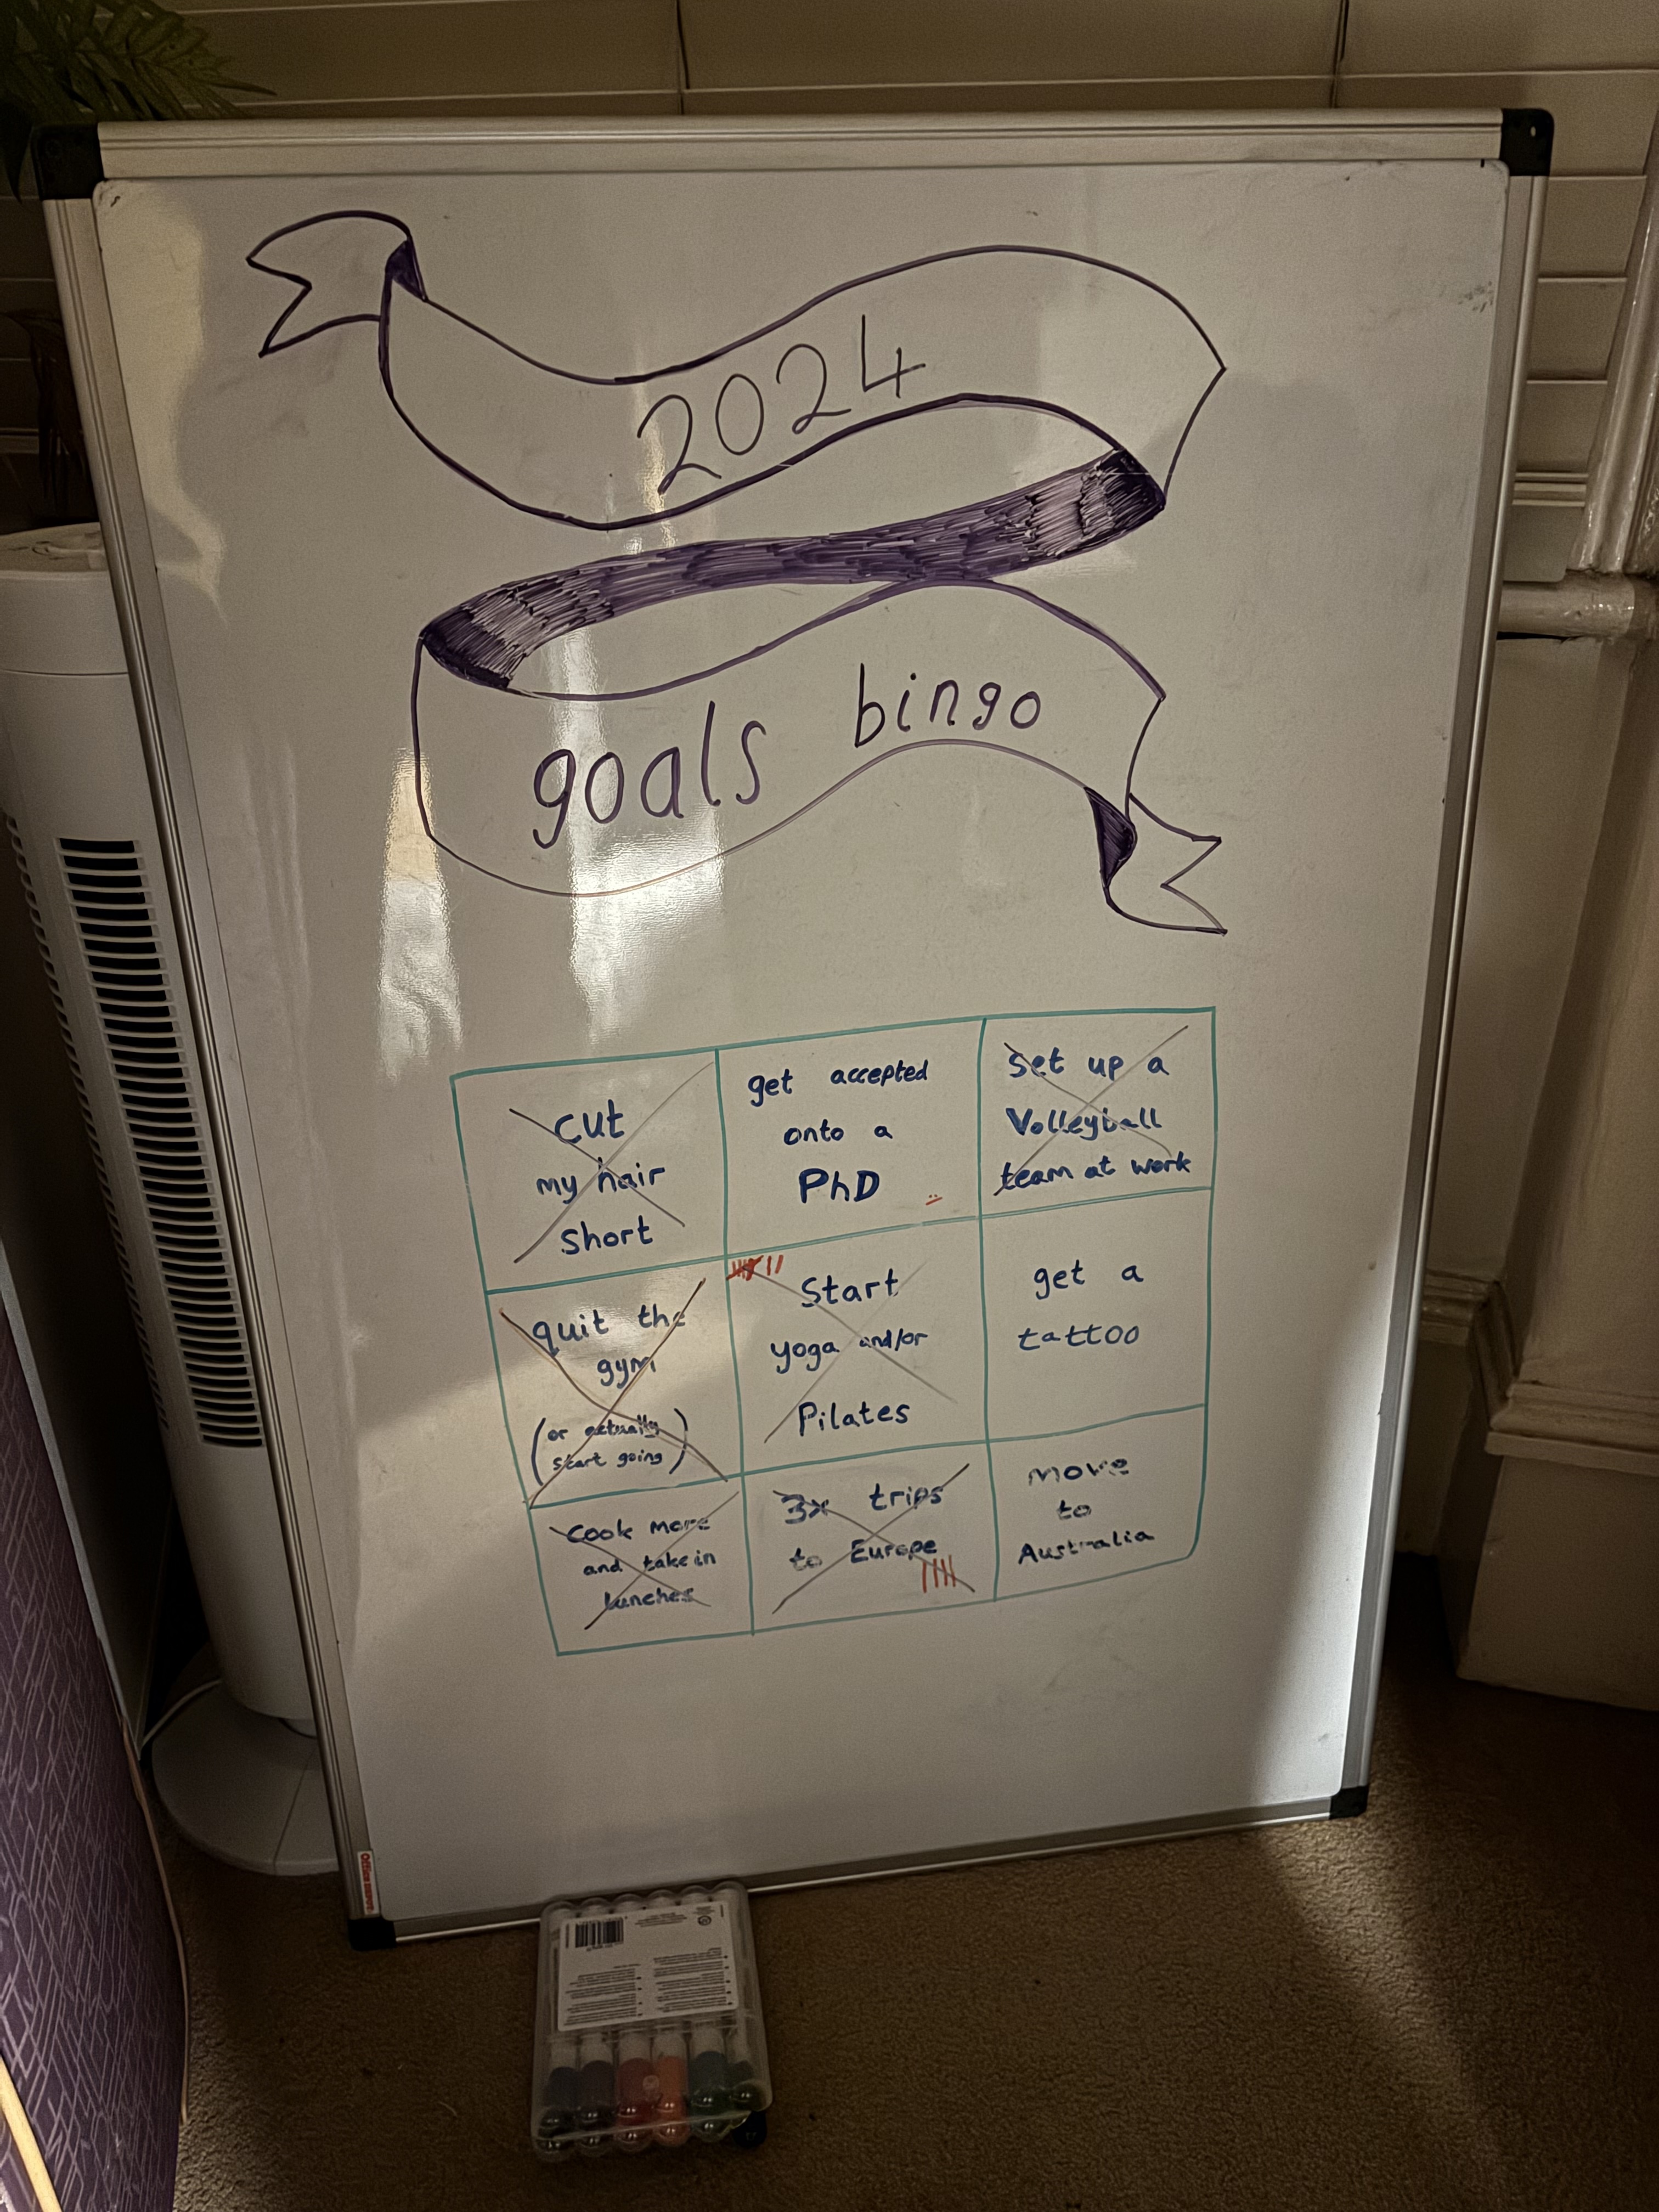 2024
goals bingo
cut
my hair
short
get accepted
onto a
PhD
set up a
Volleyball
team at work
quit the
gym
(or actually
start going)
Start
yoga and/or
Pilates
get a
tattoo
Cook more
and take in
lunches
3x trips
to Europe
move
to
Australia
Office DEPOT